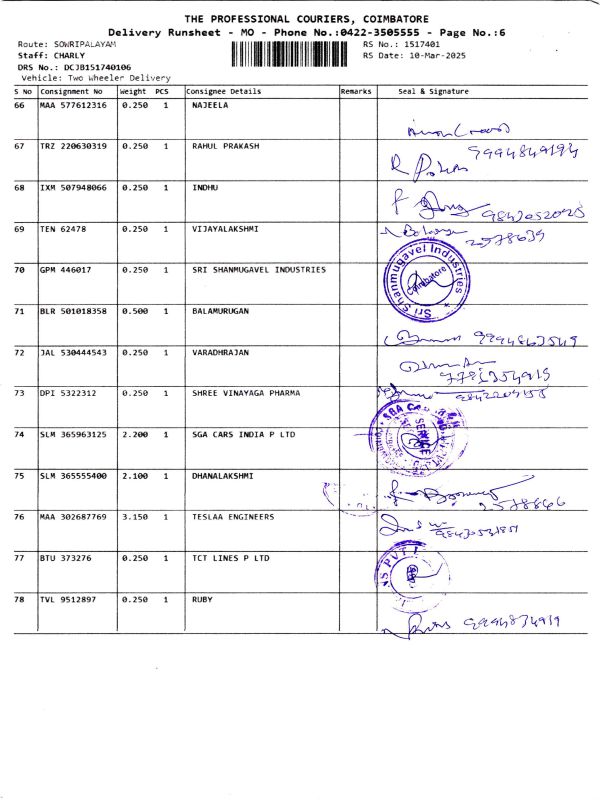 THE PROFESSIONAL COURIERS, COIMBATORE
Delivery Runsheet - MO - Phone No.:0422-3505555 - Page No.:6
Route: SOWRIPALAYAM RS No.: 1517401
Staff: CHARLY RS Date: 10-Mar-2025
DRS No.: DCJB151740106
Vehicle: Two Wheeler Delivery
S No Consignment No Weight PCS Consignee Details Remarks Seal & Signature
66 MAA 577612316 0.250 1 NAJEELA
67 TRZ 220630319 0.250 1 RAHUL PRAKASH
68 IXM 507948066 0.250 1 INDHU
69 TEN 62478 0.250 1 VIJAYALAKSHMI
70 GPM 446017 0.250 1 SRI SHANMUGAVEL INDUSTRIES
Sri Shanmugavel Industries
Coimbatore
71 BLR 501018358 0.500 1 BALAMURUGAN
72 JAL 530444543 0.250 1 VARADHRAJAN
73 DPI 5322312 0.250 1 SHREE VINAYAGA PHARMA
74 SLM 365963125 2.200 1 SGA CARS INDIA P LTD
SERVICE
75 SLM 365555400 2.100 1 DHANALAKSHMI
76 MAA 302687769 3.150 1 TESLAA ENGINEERS
77 BTU 373276 0.250 1 TCT LINES P LTD
78 TVL 9512897 0.250 1 RUBY